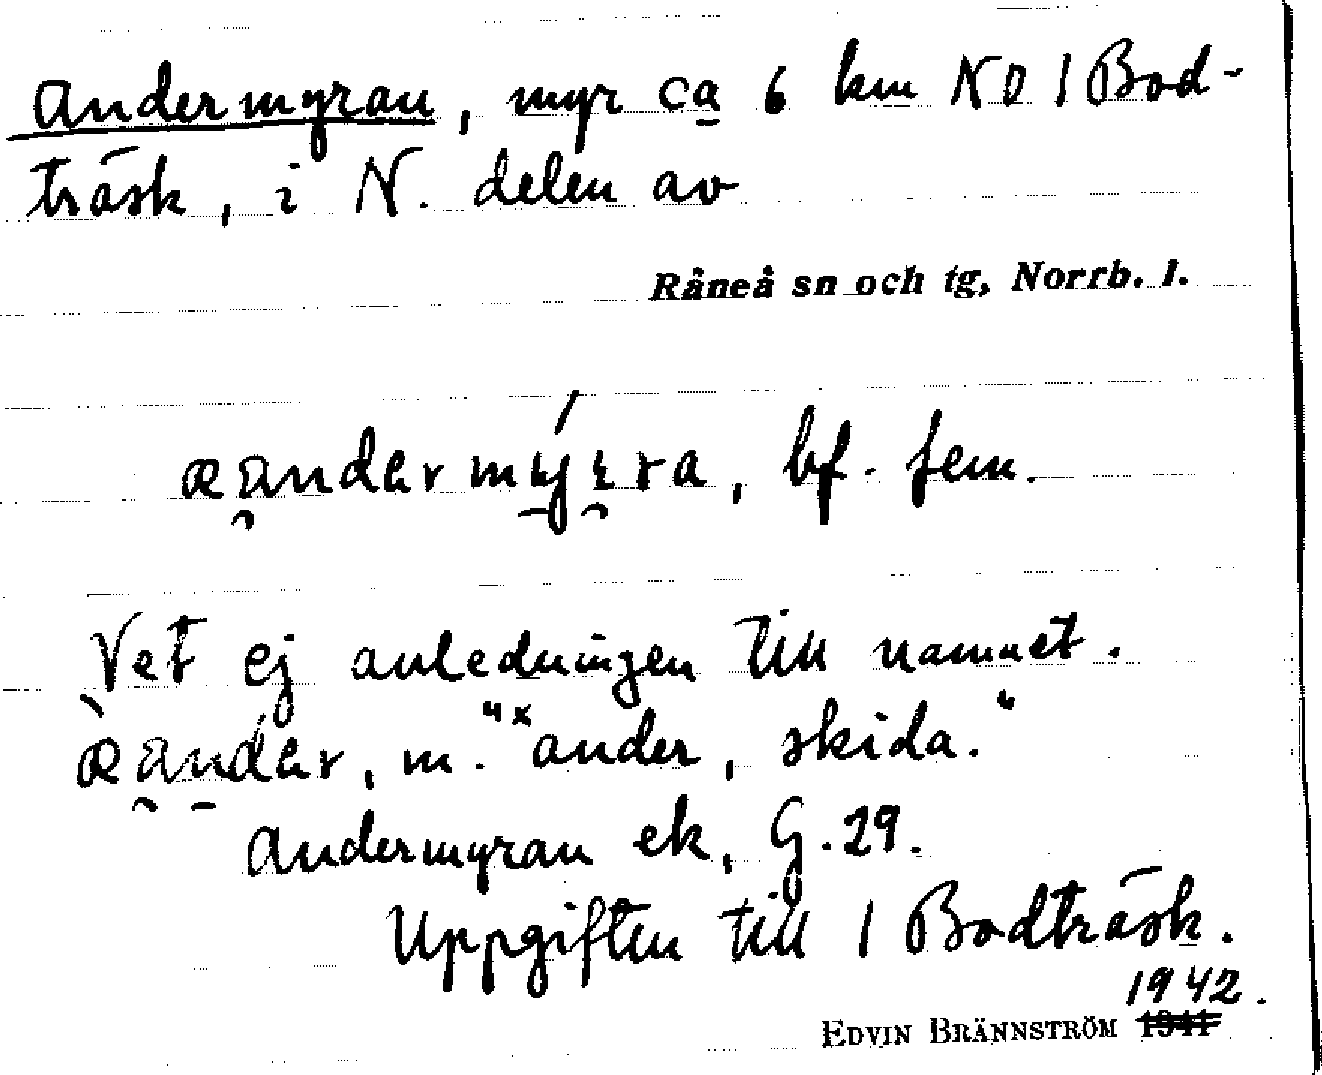 Andermyran, myr ca 6 km NO 1 Bod-
träsk, i N. delen av
Råneå sn och tg, Norrb. l.
bf. fem.
Vet ej anledningen till namnet.
m. "×ander, skida."
Andermyran ek, G. 29.
Uppgiften till 1 Bodträsk.
1942.
EDVIN BRÄNNSTRÖM 1941